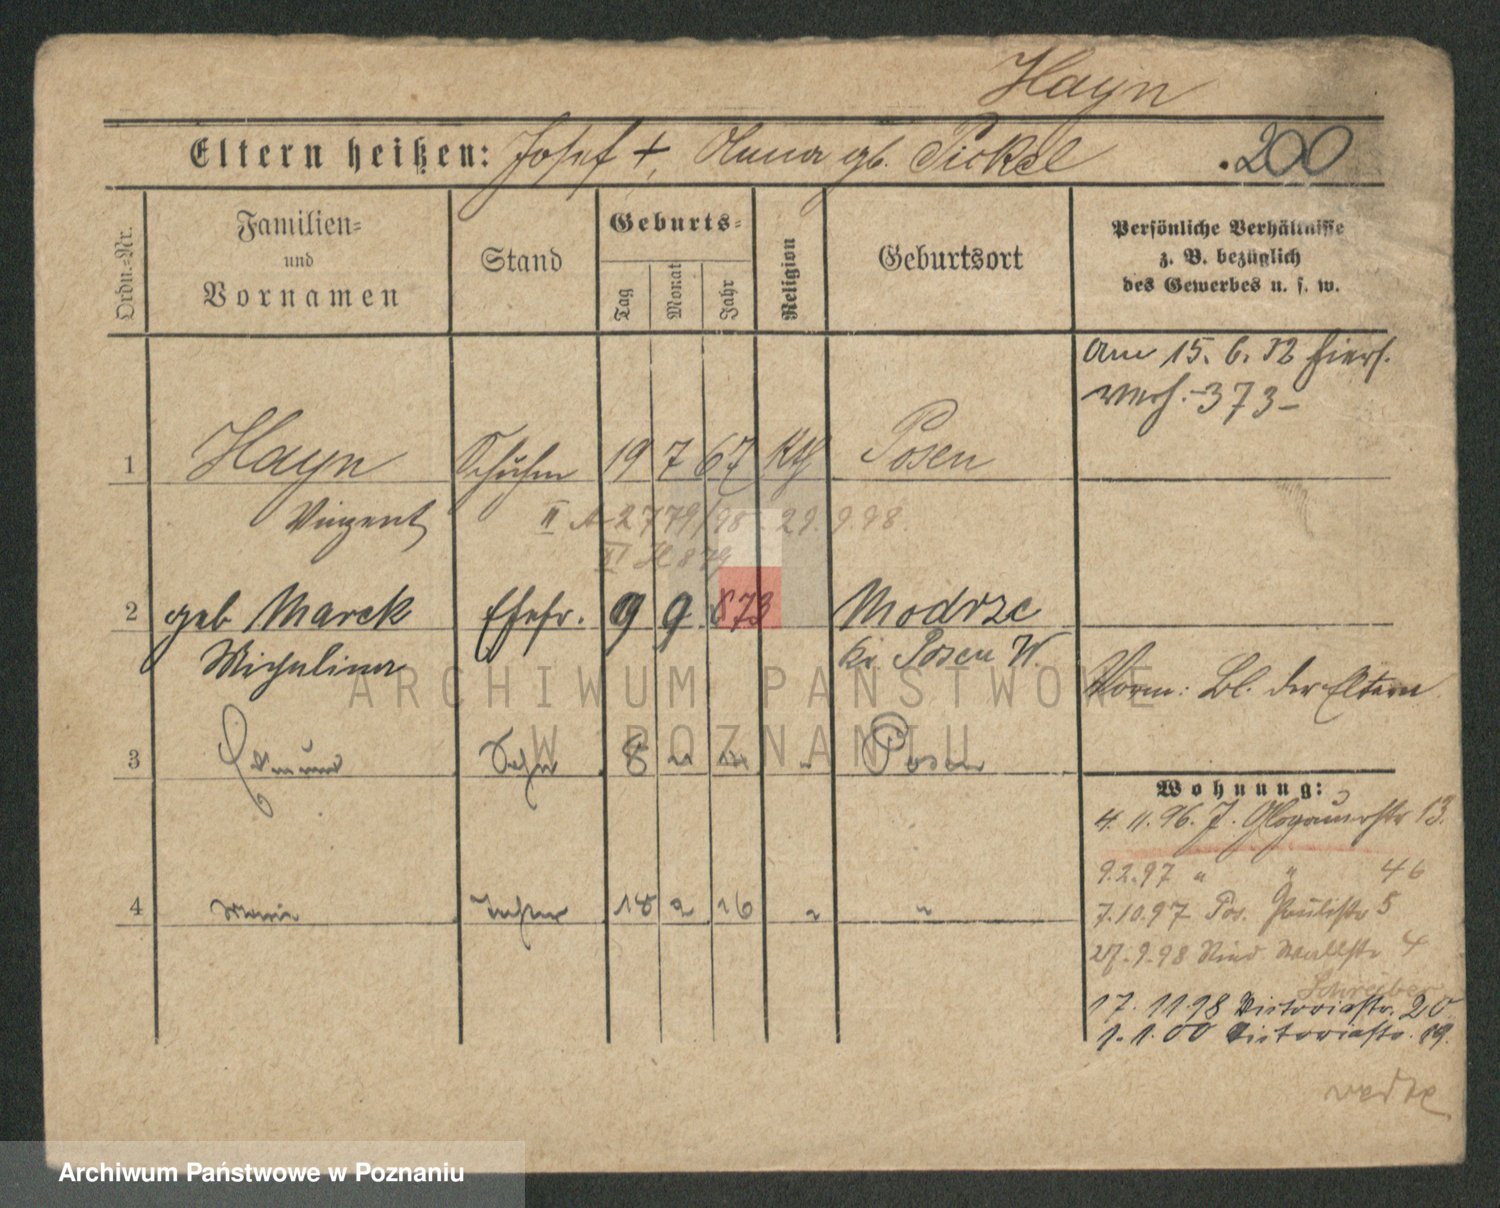 Hayn
Eltern heißen: Josef +, Anna gb. Pickel .200
Ordn.-Nr.
Familien- und Vornamen
Stand
Geburts-
Tag
Monat
Jahr
Religion
Geburtsort
Persönliche Verhältnisse
z. B. bezüglich
des Gewerbes u. s. w.
Am 15. 6. hiers.
verh. -373-
1 Hayn Schuhm 19 7 67 Kth Posen
Vinzent
II A 2779/98 - 29. 9. 98.
VI 879
2 geb Marek Ehefr. 9 9. 873 Modrze
Michalina Kr. Posen W.
Vorm: Bl. der Eltern
3 Edmund Sohn 8 Posen
Wohnung:
4. 11. 96. J. Glogauerstr 13.
9.2.97 " " 46
4 Marie Tochter 18 2 "
7.10.97 Pos. Paulistr 5
27.9.98 Wallstr 4
Schreiber
17. 11 98 Victoriastr. 20
1. 1. 00 Victoriastr. 19.
ARCHIWUM PAŃSTWOWE
W POZNANIU
Archiwum Państwowe w Poznaniu